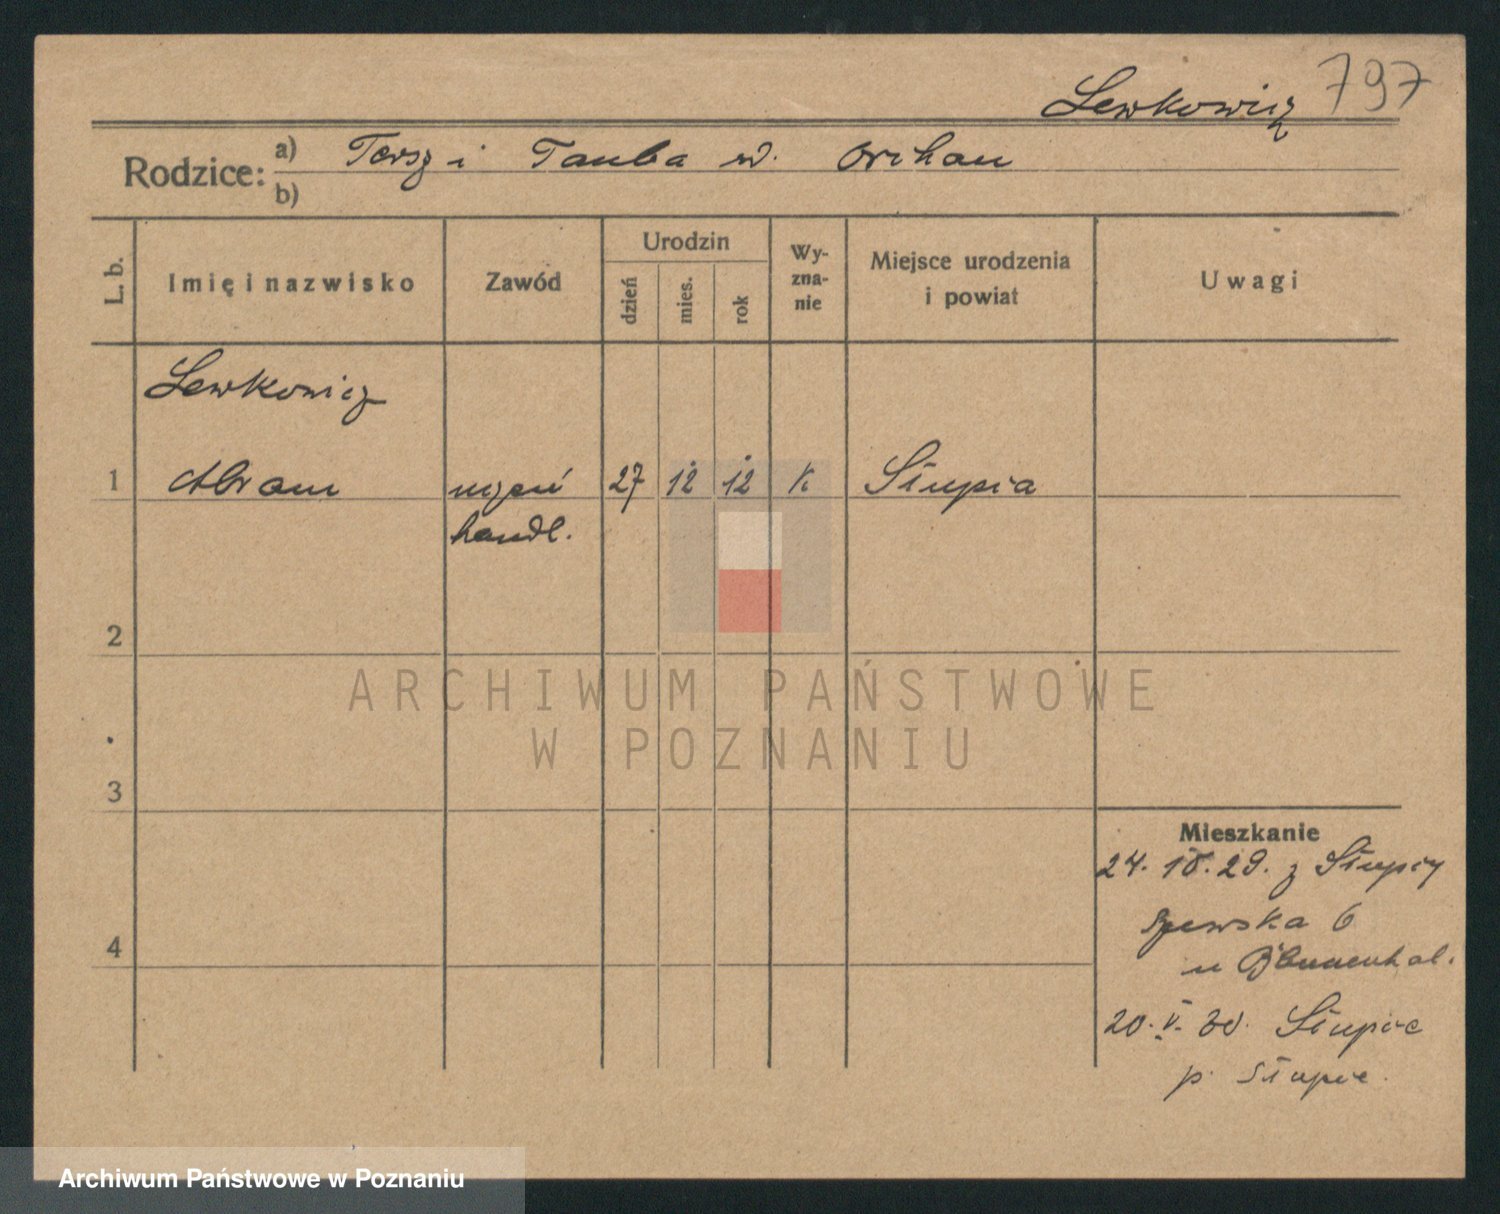 Lewkowicz 797
Rodzice: a) i Tauba
b)
L. b.
Imię i nazwisko
Zawód
Urodzin
dzień
mies.
rok
Wy-
zna-
nie
Miejsce urodzenia
i powiat
Uwagi
Lewkowicz
1 Abram uczeń 27 12 12 Słupia
handl.
2
ARCHIWUM PAŃSTWOWE
W POZNANIU
3
Mieszkanie
24. 29. z Słupcy
Szewska 6
u Blumenthal.
4
20. V. 30.
p.
Archiwum Państwowe w Poznaniu